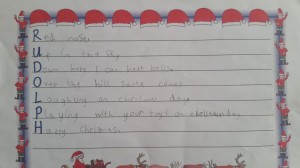 Red nose
Up in the sky
Down here I can hear bells
Over the hill Santa comes
Laughing on christmas day
Playing with your toys on christmas day
Happy Christmas